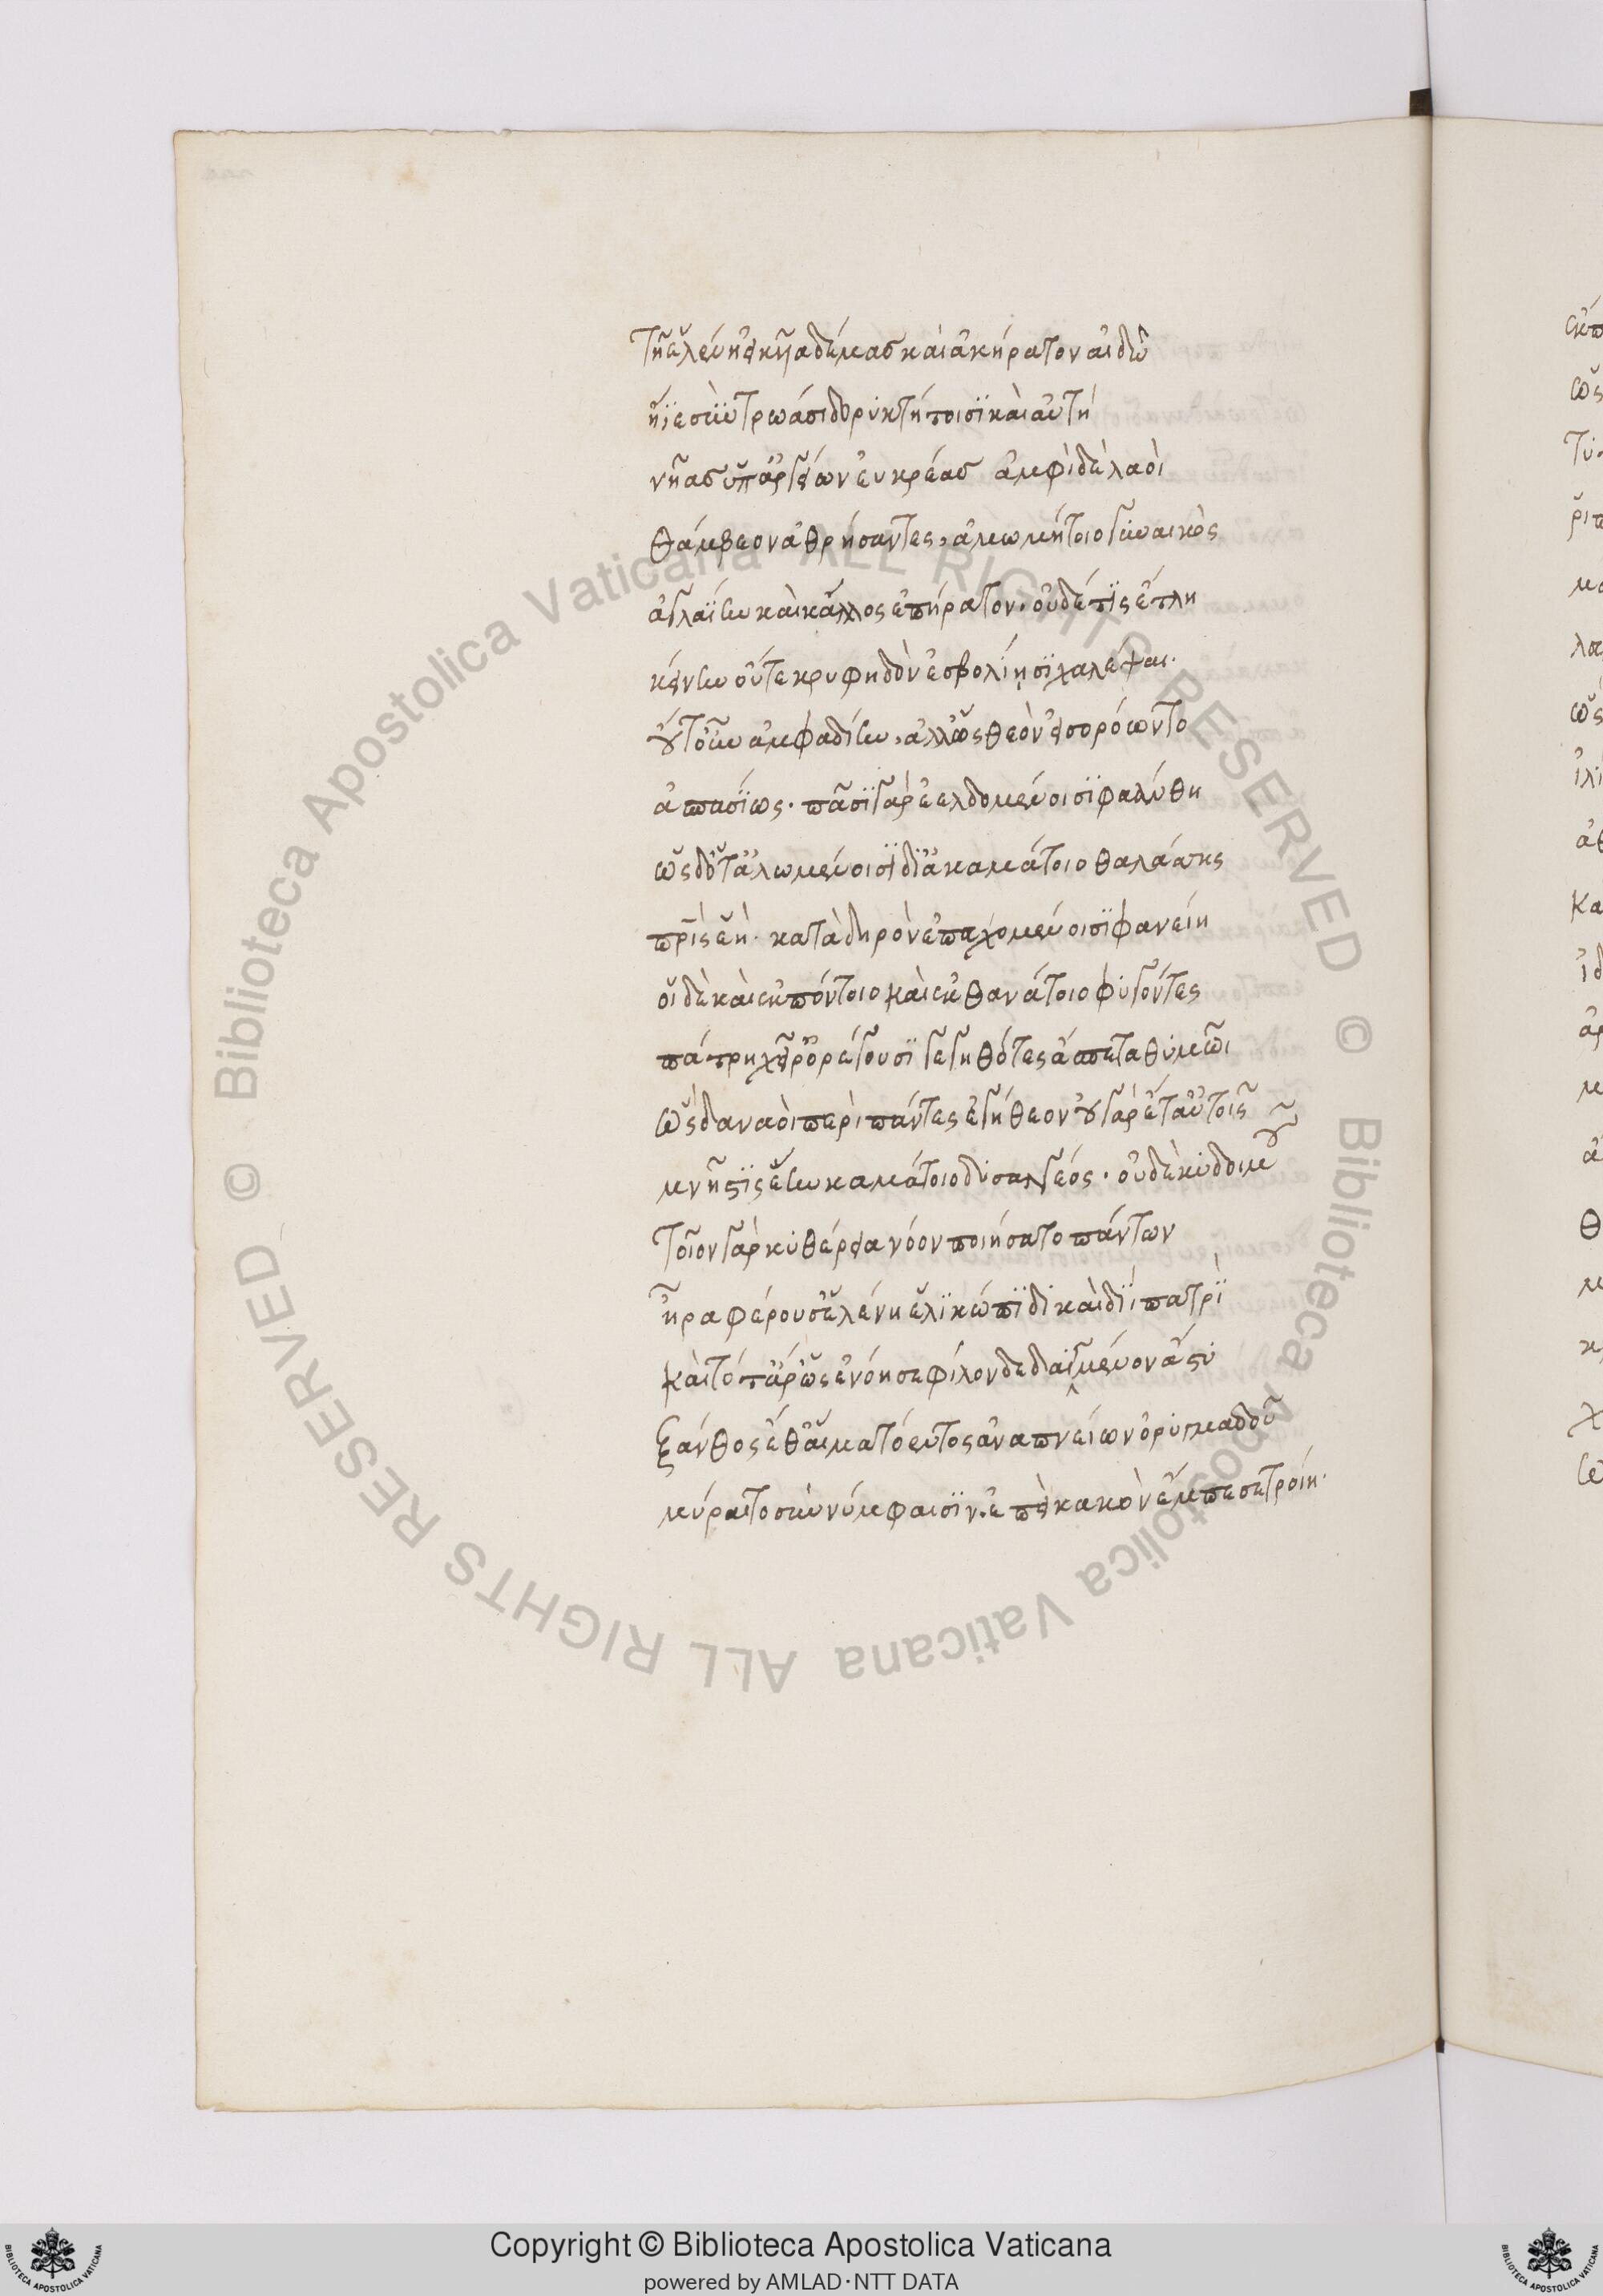 τῇ ἑλένη εἰκυῖα δέμας καὶ ἀκήρατον αἰδῶ
ἤϊε σὺν τρωάσι δορικτήτοισϊ καὶ αὐτὴ
νῆας ἐπ' ἀργείων εὐκρέας ἀμφὶ δὲ λαοὶ
θάμβεον ἀθρήσαντες, ἀμωμήτοιο γυναικὸς
ἀγλαΐην καὶ κάλλος ἐπήρατον. οὐδέ τϊς ἔτλη
κείνην οὔτε κρυφηδὸν ἐσβολίῃσϊ χαλέψαι.
οὔτ' οὖν ἀμφαδίην, ἀλλ' ὣς θεὸν εἰσορόωντο
ἀσπασίως. πᾶσϊ γὰρ ἐελδομένοισϊ φαάνθη
ὡς δ' ὅτ' ἀλωμένοισϊ δϊ' ἀκαμάτοιο θαλάσσης
πατρὶς ἑὴ. κατὰ δηρὸν ἐπευχομένοισϊ φανείη
οἱ δὲ καὶ ἐκ πόντοιο καὶ ἐκ θανάτοιο φυγόντες
πάτρη χεῖρ' ὀρέγουσϊ γεγηθότες ἄσπετα θυμῶι
ὣς δαναοὶ περὶ πάντες ἐγήθεον οὐ γὰρ ἔτ' αὐτοῖς
μνῆστϊς ἔην καμάτοιο δυσαλγέος. οὐδὲ κυδοιμοῦ
τοῖον γὰρ κυθέρεια νόον ποιήσατο πάντων
ἦρα φέρουσ' ἑλένη ἑλϊκώπϊδι καὶ διῒ πατρῒ
καὶ τότ' ἄρ' ὡς ἐνόησε φίλον δεδαϊγμένον ἄστυ
ξάνθος ἔθ' αἱματόεντος ἀναπνείων ὀρυμαγδοῦ
μύρατο σὺν νύμφαισϊν. ἐπεὶ κακὸν ἔμπεσε τροίη.
Copyright © Biblioteca Apostolica Vaticana
powered by AMLAD·NTT DATA